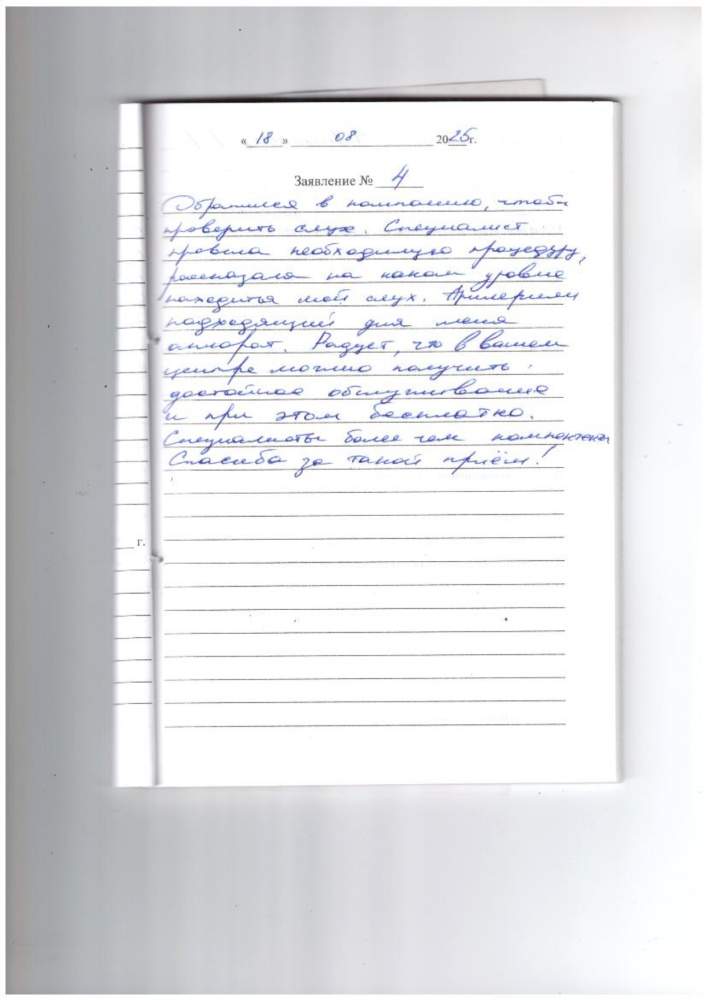 «18» 08 2025г.
Заявление № 4
Обратился в компанию, чтобы
проверить слух. Специалист
провела необходимую процедуру,
рассказала на каком уровне
находится мой слух. Примерили
подходящий для меня
аппарат. Радует, что в вашем
центре можно получить
достойное обслуживание
и при этом бесплатно.
Специалисты более чем компетентны
Спасибо за такой приём!
г.